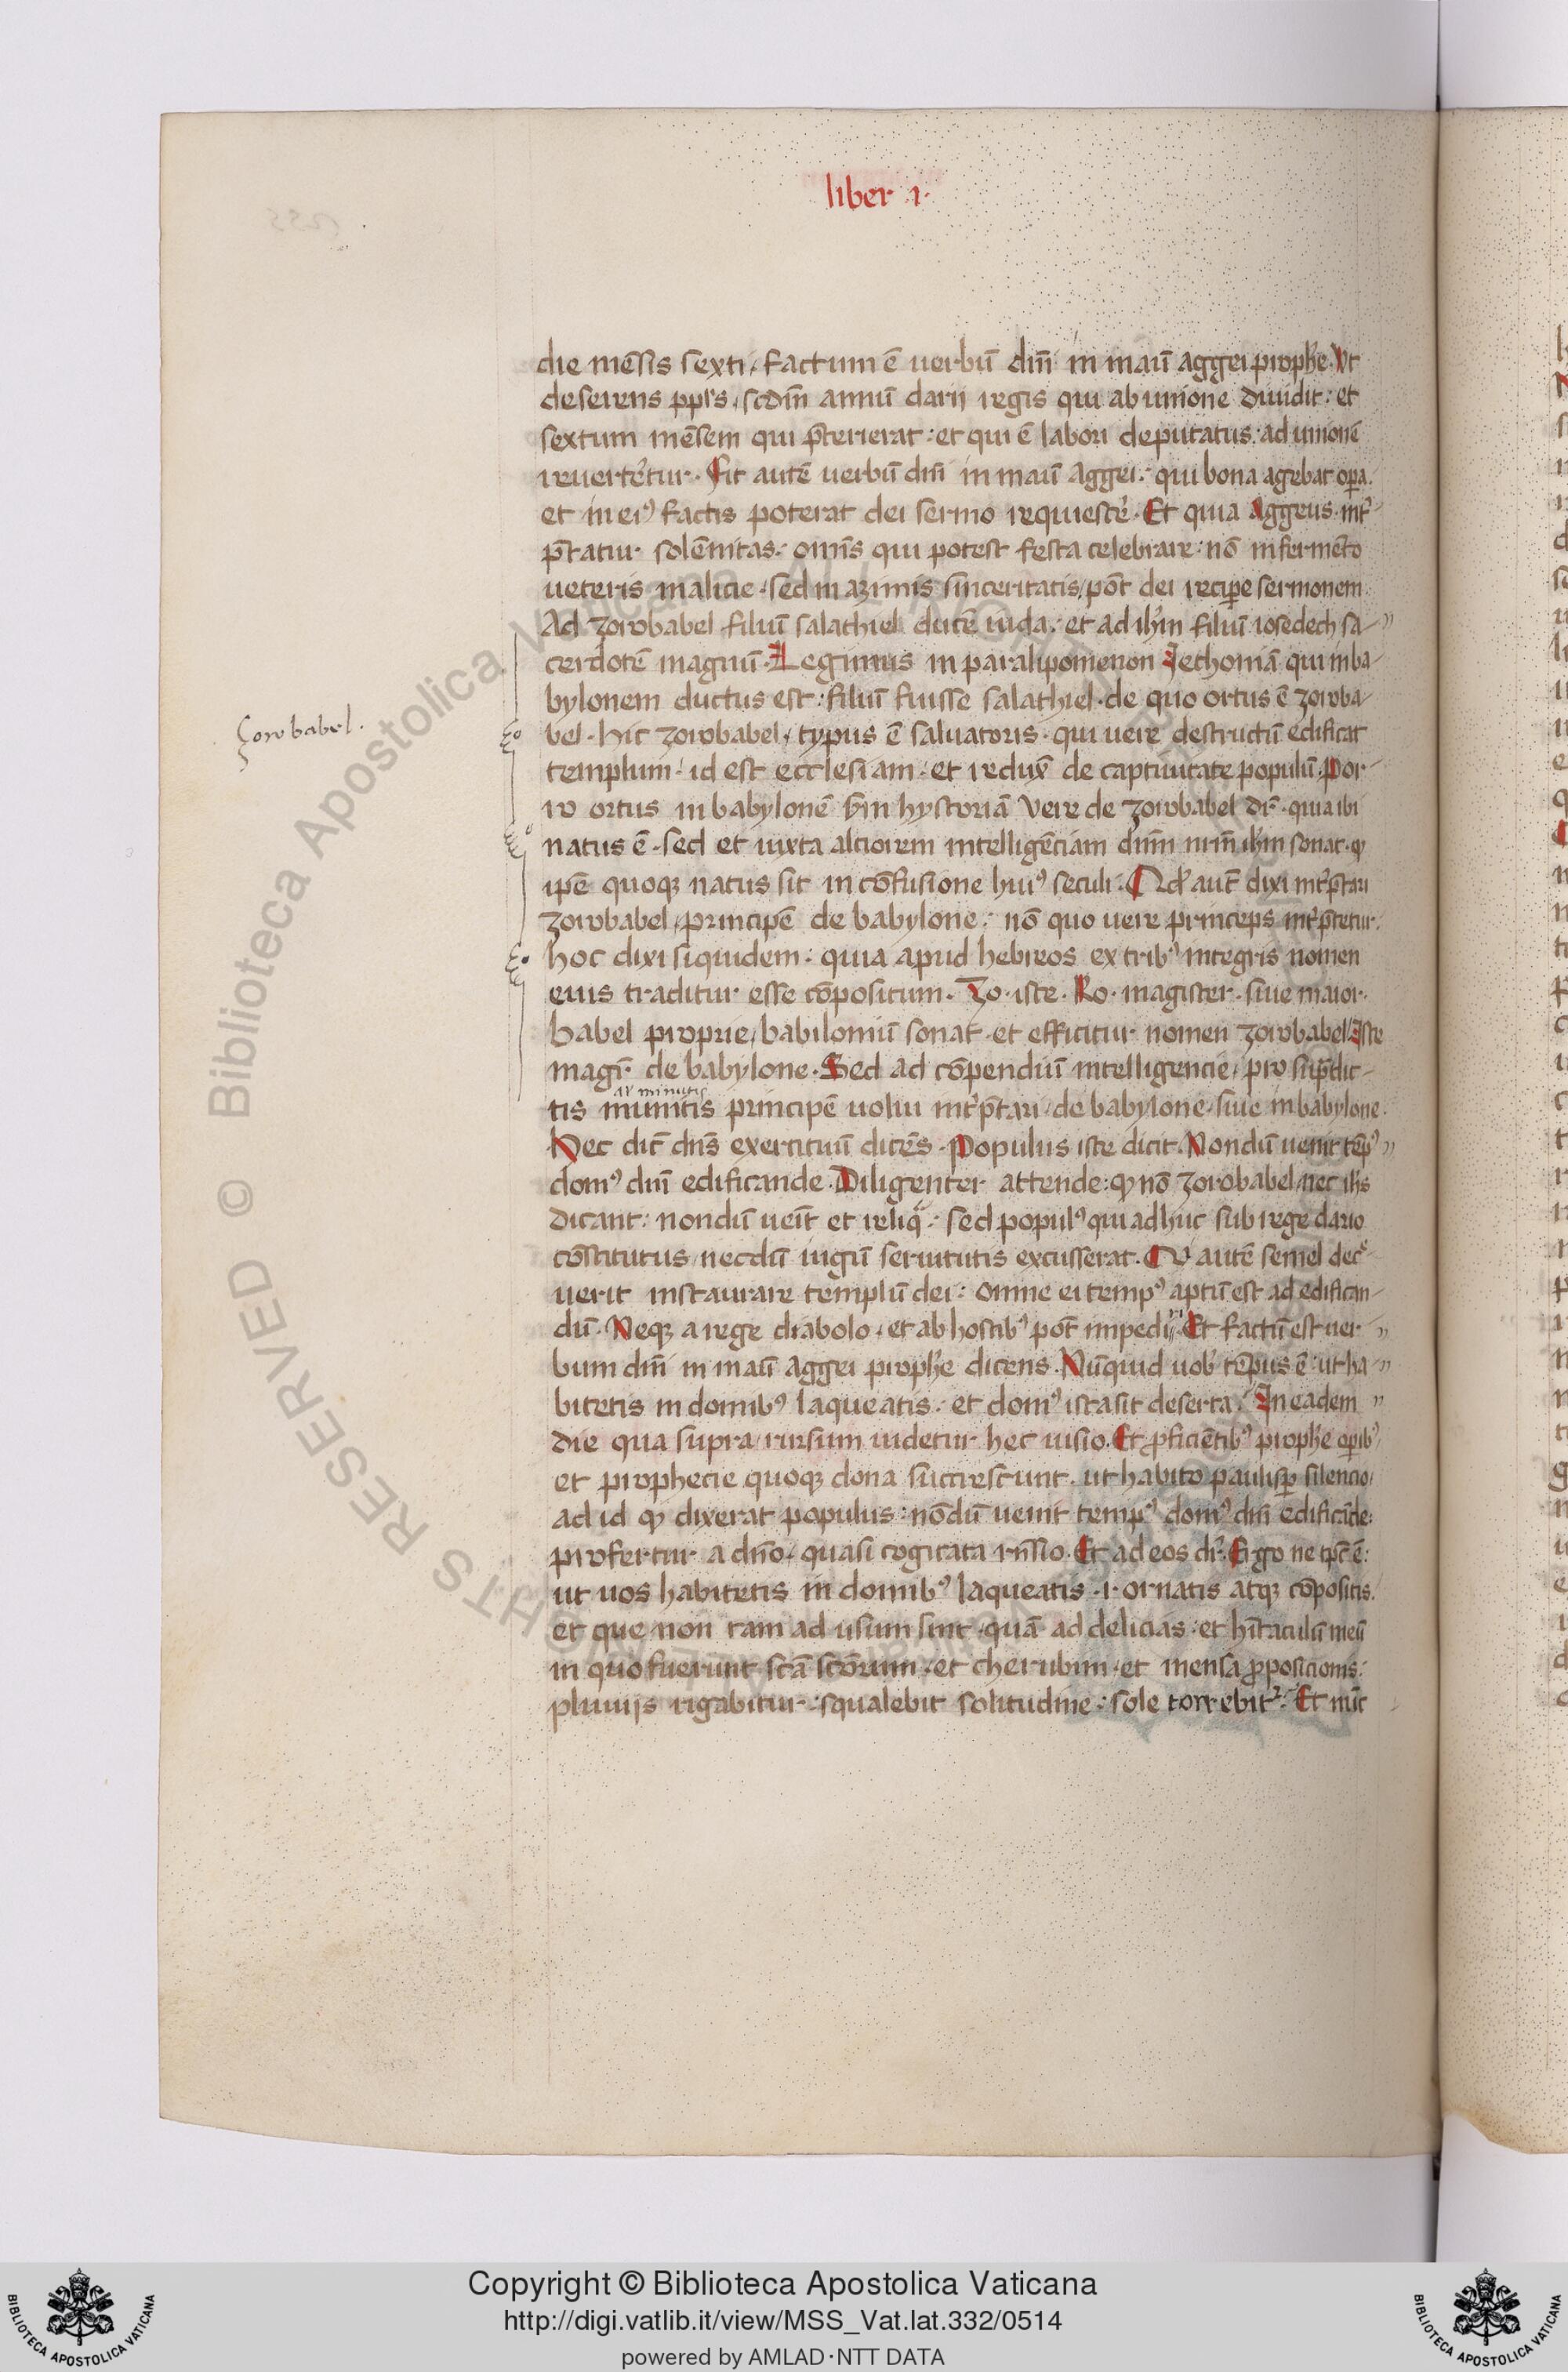 liber .i.
die mēsis sexti, factum ē uerbū dn̄i in manū aggei prophe. Vt
deserens ppl's, scd̄m annū darij regis qui ab unione diuidit: et
sextum mēsem qui p̄terierat: et qui ē labori deputatus: ad unionē
reuertetur. Fit autē uerbū dn̄i in manū Aggei: qui bona agebat opa.
et in ei⁹ factis poterat dei sermo requiesce. Et quia Aggeus int̓-
p̄tatur solēnitas: omīs qui potest festa celebrare: nō in fermēto
ueteris malicie, sed in azimis sinceritatis, pōt dei recipe sermonem.
Ad zorobabel filiū salathiel ducē iuda: et ad ih̄m filiū iosedech sa-
cerdotē magnū. Legimus in paralipomenon Jechoniā qui in ba-
bylonem ductus est: filiū fuisse salathiel. de quo ortus ē zoroba-
bel. hic zorobabel, typus ē saluatoris. qui uere destructū edificat
Zorobabel.
templum: id est ecclesiam: et redux̄ de captiuitate populū. Por-
ro ortus in babylonē s̄m hystoriā Vere de zorobabel dr̄. quia ibi
natus ē. sed et iuxta altiorem intelligēciam dn̄m nrm̄ ih̄m sonat. ꝙ
ipē quoqꝫ natus sit in cōfusione hui⁹ seculi. Qd̓ aut̄ dixi int̓p̄tari
zorobabel, principē de babylone: nō quo uere princeps int̓p̄tetur.
hoc dixi siquidem: quia apud hebreos ex trib⁹ integris nomen
eius traditur esse cōpositum. Zo. iste. Ro. magister. siue maior.
babel proprie, babiloniū sonat. et efficitur nomen zorobabel, Iste
magr̄. de babylone. Sed ad cōpendiū intelligencie, pro sup̄dic-
al' minutis
tis munitis principē uolui int̓p̄tari, de babylone, siue in babylone.
Hec dic̄ dn̄s exercituū dicēs. Populus iste dicit. Nondū uenit tēp⁹
dom⁹ dn̄i edificande. Diligenter attende: ꝙ nō zorobabel, nec ih̄s
dicant: nondū ueīt et reliq̄: sed popul⁹ qui adhuc sub rege dario
cōstitutus, necdū iugū seruitutis excusserat. Qui autē semel dec̓-
uerit instaurare templū dei: omne ei temp⁹ aptū est ad edifican-
dū. Neqꝫ a rege diabolo, et ab hostib⁹ pōt impediri. Et factū est uer-
bum dn̄i in manū Aggei prophe dicens. Nūquid uob̓ tēpus ē: ut ha-
bitetis in domib⁹ laqueatis: et dom⁹ ista sit deserta. In eadem
die qua supra, rursum uidetur hec uisio. Et ꝓficiētib⁹ prophe opib⁹,
et prophecie quoqꝫ dona succrescunt. ut habito paulisꝑ silencio,
ad id ꝙ dixerat populus: nōdū uenit temp⁹ dom⁹ dn̄i edificāde:
profertur a dn̄o, quasi cogitata rn̄sio. Et ad eos dr̄. Ergo ne tp̄s ē:
ut uos habitetis in domib⁹ laqueatis .i. ornatis atqꝫ cōpositis.
et que non tam ad usum sint, quā ad delicias: et hītaculū meū
in quo fuerunt scā scōrum, et cherubim, et mensa ꝓposicionis:
pluuijs rigabitur: squalebit solitudine: sole torrebit᷑: Et nūc
Copyright © Biblioteca Apostolica Vaticana
http://digi.vatlib.it/view/MSS_Vat.lat.332/0514
powered by AMLAD·NTT DATA